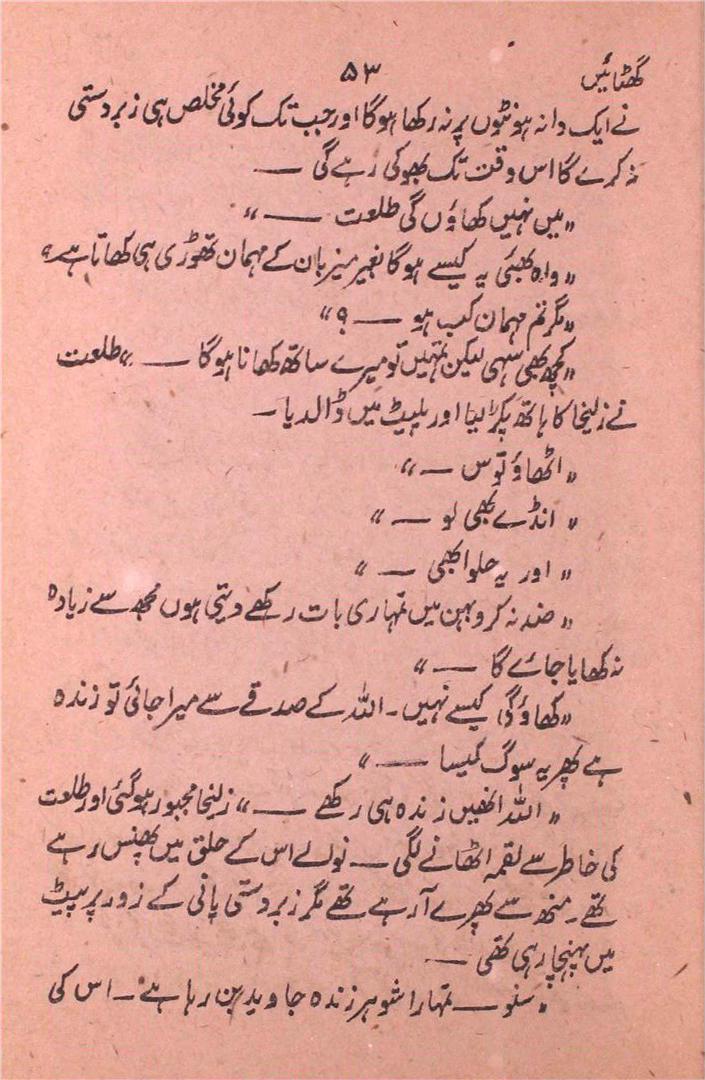 گھٹائیں ۵۳
نے ایک دانہ ہونٹوں پر نہ رکھا ہوگا اور جب تک کوئی مخلص ہی زبردستی
نہ کرے گا اس وقت تک بھوکی رہے گی ــــ
"میں نہیں کھاؤں گی طلعت ــــ"
"واہ بھئی یہ کیسے ہوگا بغیر میزبان کے مہمان تھوڑی ہی کھاتا ہے۔؟
"مگر تم مہمان کب ہو ــــ ؟"
"کچھ بھی سہی لیکن تمہیں تو میرے ساتھ کھانا ہوگا ــــ" طلعت
نے زلیخا کا ہاتھ پکڑ لیا اور پلیٹ میں ڈالدیا۔
"اٹھاؤ توس ــــ"
"انڈے بھی لو ــــ"
"اور یہ حلوا بھی ــــ"
"ضد نہ کرو بہن میں تمہاری بات رکھے دیتی ہوں مجھ سے زیادہ
نہ کھایا جائے گا ــــ"
"کھاؤگی کیسے نہیں۔ اللہ کے صدقے سے میرا جائی تو زندہ
ہے پھر یہ سوگ کیسا ــــ"
"اللہ انھیں زندہ ہی رکھے ــــ" زلیخا مجبور ہوگئی اور طلعت
کی خاطر سے لقمہ اٹھانے لگی ــــ نوالے اس کے حلق میں پھنس رہے
تھے۔ منھ سے پھرے آرہے تھے مگر زبردستی پانی کے زور پر پیٹ
میں پہنچا رہی تھی ــــ
"سنو ــــ تمہارا شوہر زندہ جاوید بن رہا ہے۔ اس کی